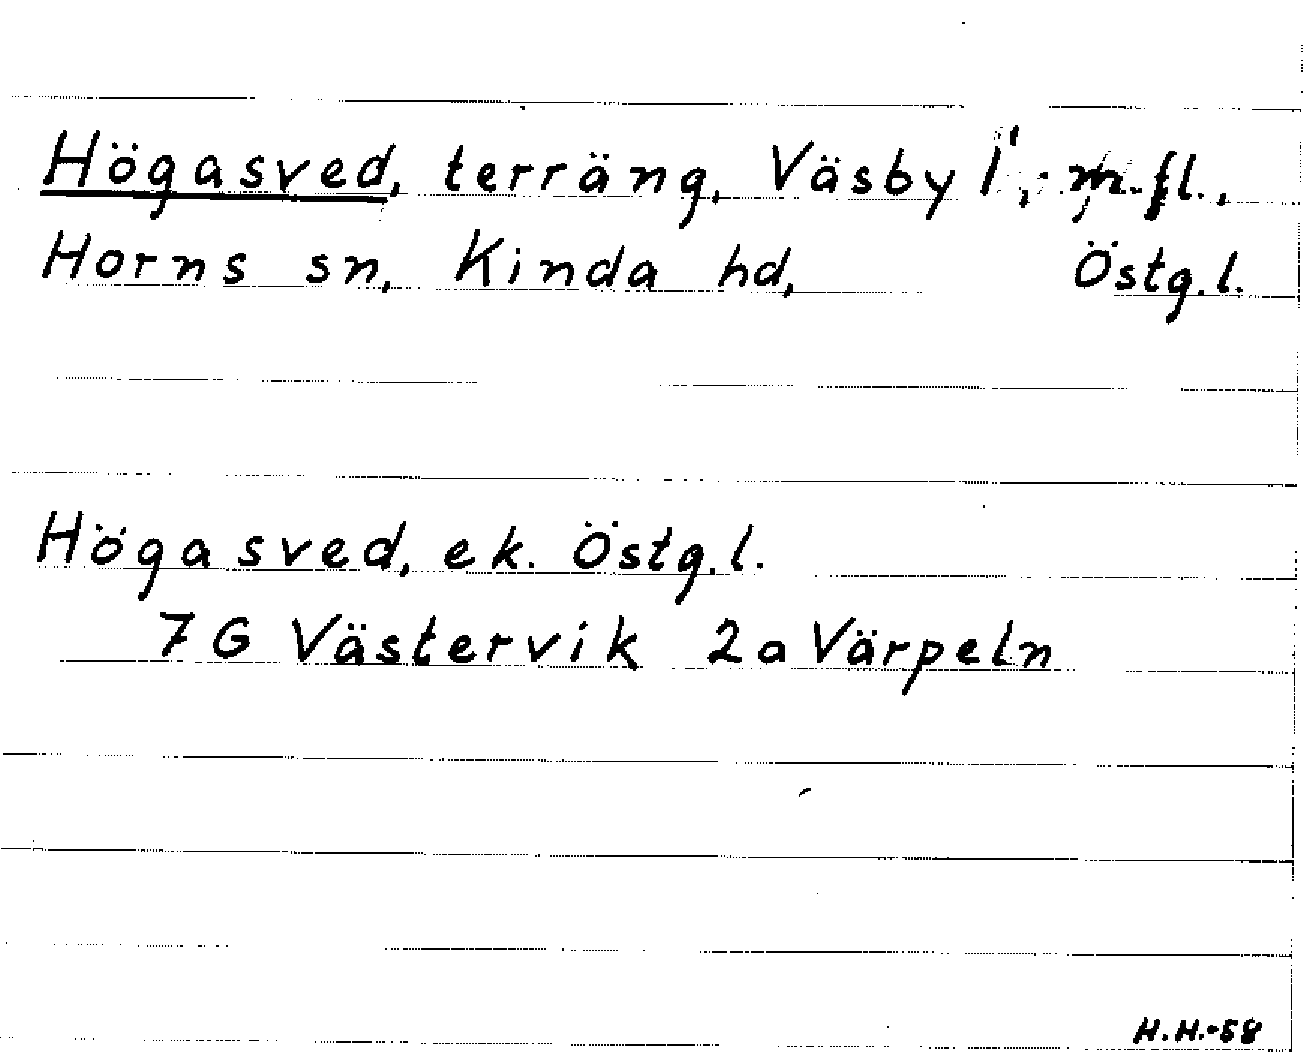 Högasved, terräng, Väsby 1, m.fl.,
Horns sn, Kinda hd, Östg.l.
Högasved, ek. Östg.l.
7 G Västervik 2a Värpeln
H.H.-58